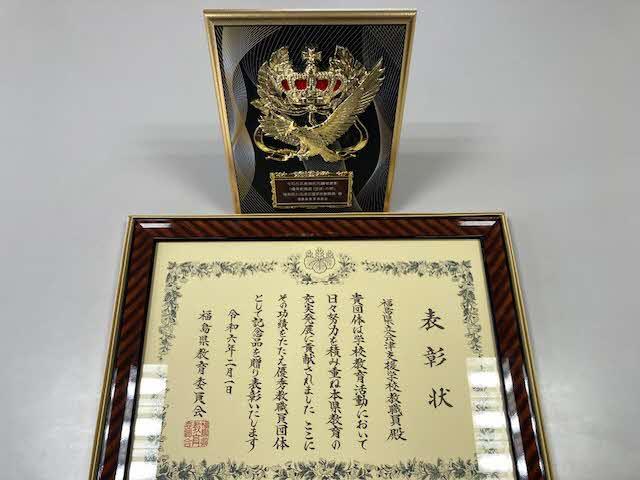 表彰状
福島県立会津支援学校教職員殿
貴団体は学校教育活動において
日々努力を積み重ね本県教育の
充実発展に貢献されました ここに
その功績をたたえ優秀教職員団体
として記念品を贈り表彰いたします
令和六年二月一日
福島県教育委員会